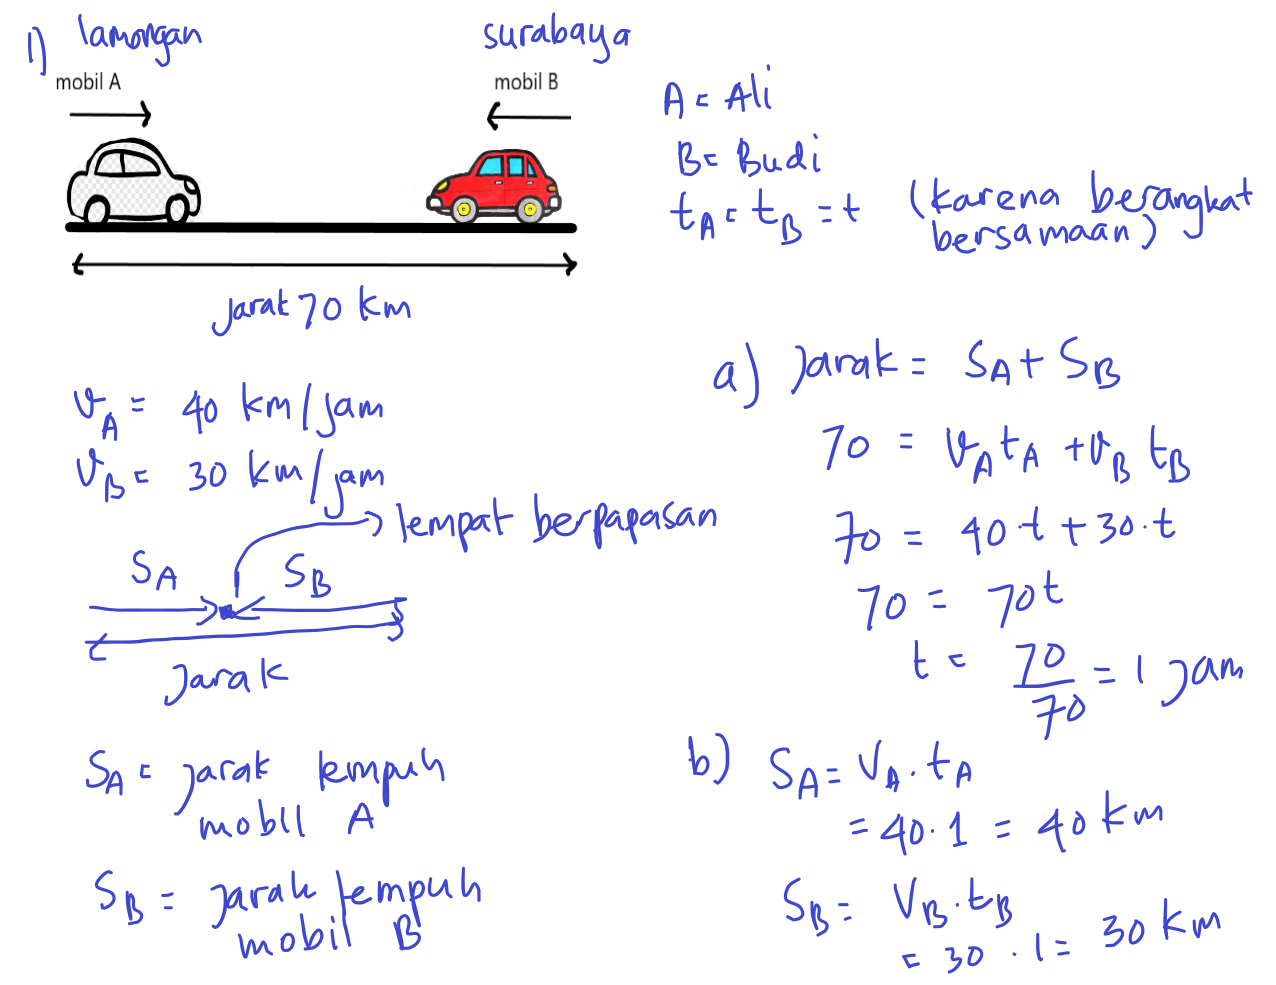 1) lamongan
surabaya
mobil A
mobil B
jarak 70 km
v_A = 40 km/jam
v_B = 30 km/jam
tempat berpapasan
S_A
S_B
Jarak
S_A = jarak tempuh
mobil A
S_B = jarak tempuh
mobil B
A = Ali
B = Budi
t_A = t_B = t (karena berangkat
bersamaan)
a) Jarak = S_A + S_B
70 = v_A t_A + v_B t_B
70 = 40·t + 30·t
70 = 70t
t = 70/70 = 1 jam
b) S_A = V_A . t_A
= 40·1 = 40 km
S_B = V_B . t_B
= 30 . 1 = 30 km